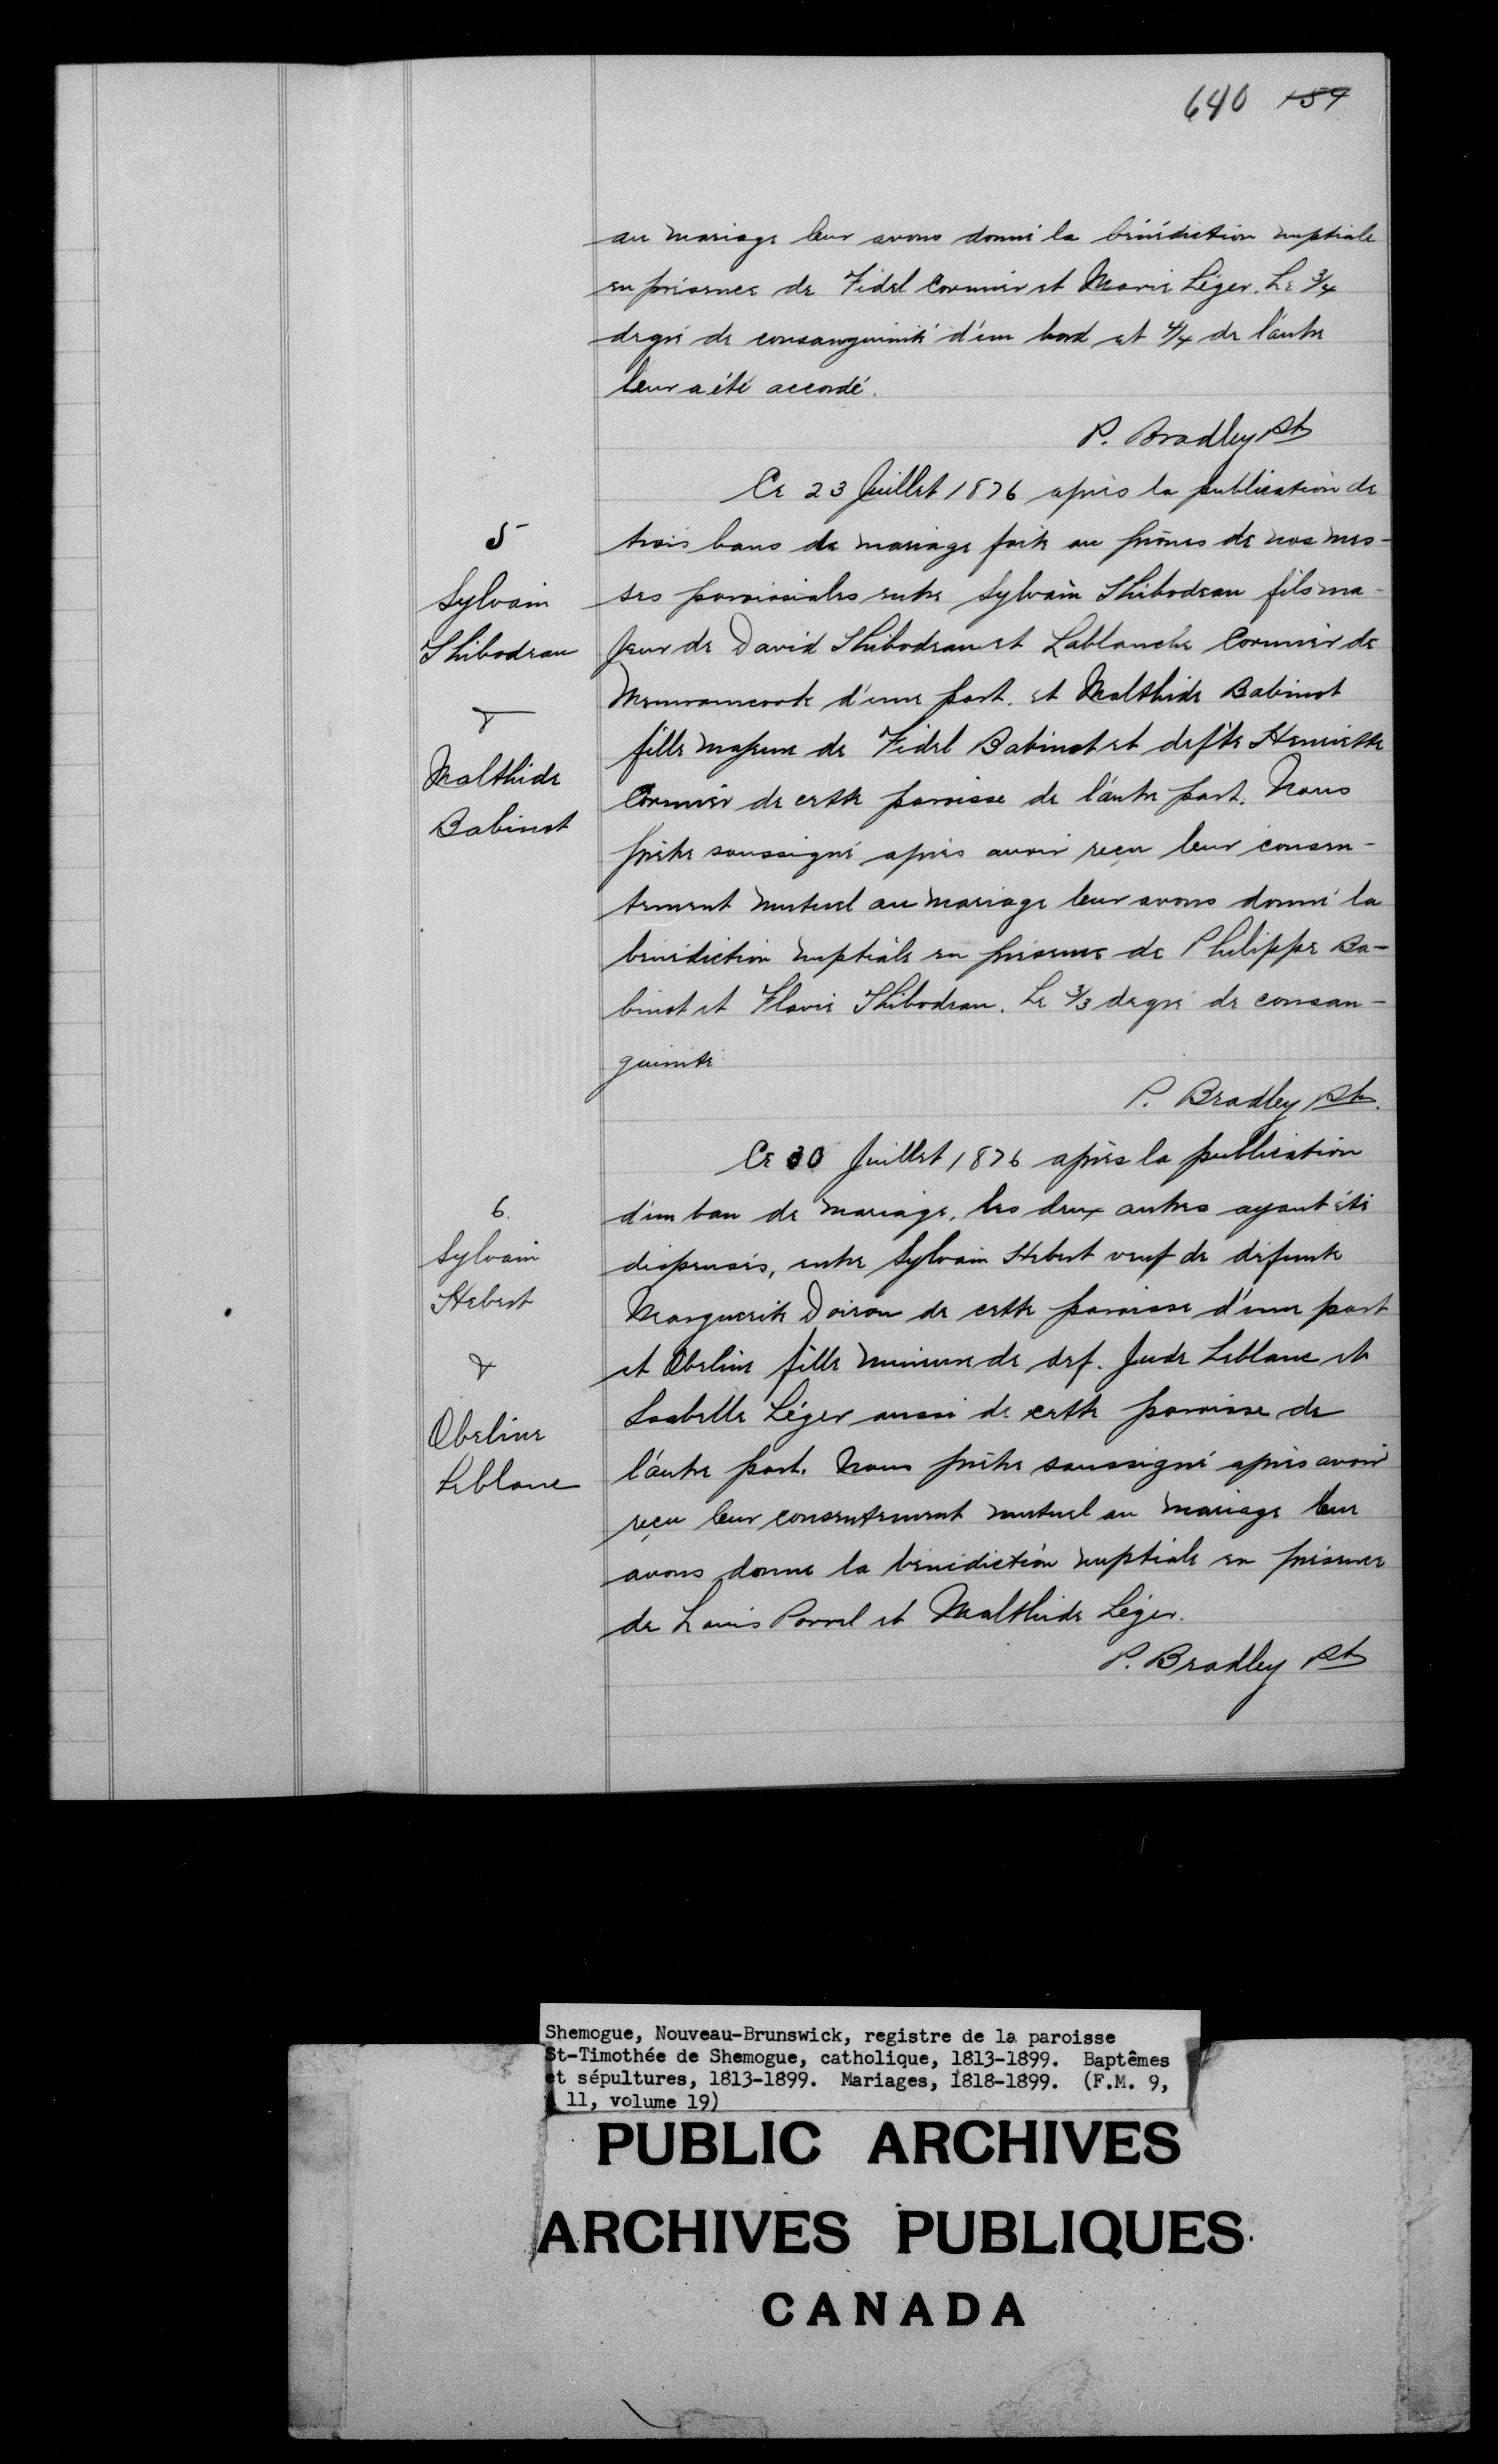 640 159
au mariage leur avons donné la bénédiction nuptiale
en présence de Fidel Cormier et Marie Léger. Le 3/4
degré de consanguinité d'un bord et 4/4 de l'autre
leur a été accordé.
P. Bradley Pt
Ce 23 Juillet 1876 après la publication de
trois bans de mariage faite au prônes de nos mes-
ses paroissiales entre Sylvain Thibodeau fils ma-
jeur de David Thibodeau et Lablanche Cormier de
Memramcook d'une part. et Malthide Babinot
fille majeure de Fidel Babinot et defte Henriette
Cormier de cette paroisse de l'autre part. Nous
prêtre soussigné après avoir reçu leur consen-
tement mutuel au mariage leur avons donné la
bénédiction nuptiale en présence de Philippe Ba-
binot et Flavie Thibodeau. Le 3/3 degré de consan-
guinité
P. Bradley Pt.
5
Sylvain
Thibodeau
&
Malthide
Babinot
Ce 30 Juillet 1876 après la publication
d'un ban de mariage, les deux autres ayant été
dispensés, entre Sylvain Hebert veuf de défunte
Marguerite Doiron de cette paroisse d'une part
et Obeline fille mineure de def. Jude Leblanc et
Isabelle Léger aussi de cette paroisse de
l'autre part. Nous prêtre soussigné après avoir
reçu leur consentement mutuel au mariage leur
avons donne la bénédiction nuptiale en présence
de Louis Porrel et Malthide Léger.
P. Bradley Pt
6.
Sylvain
Hebert
&
Obeline
Leblanc
Shemogue, Nouveau-Brunswick, registre de la paroisse
St-Timothée de Shemogue, catholique, 1813-1899. Baptêmes
et sépultures, 1813-1899. Mariages, 1818-1899. (F.M. 9,
11, volume 19)
PUBLIC ARCHIVES
ARCHIVES PUBLIQUES
CANADA